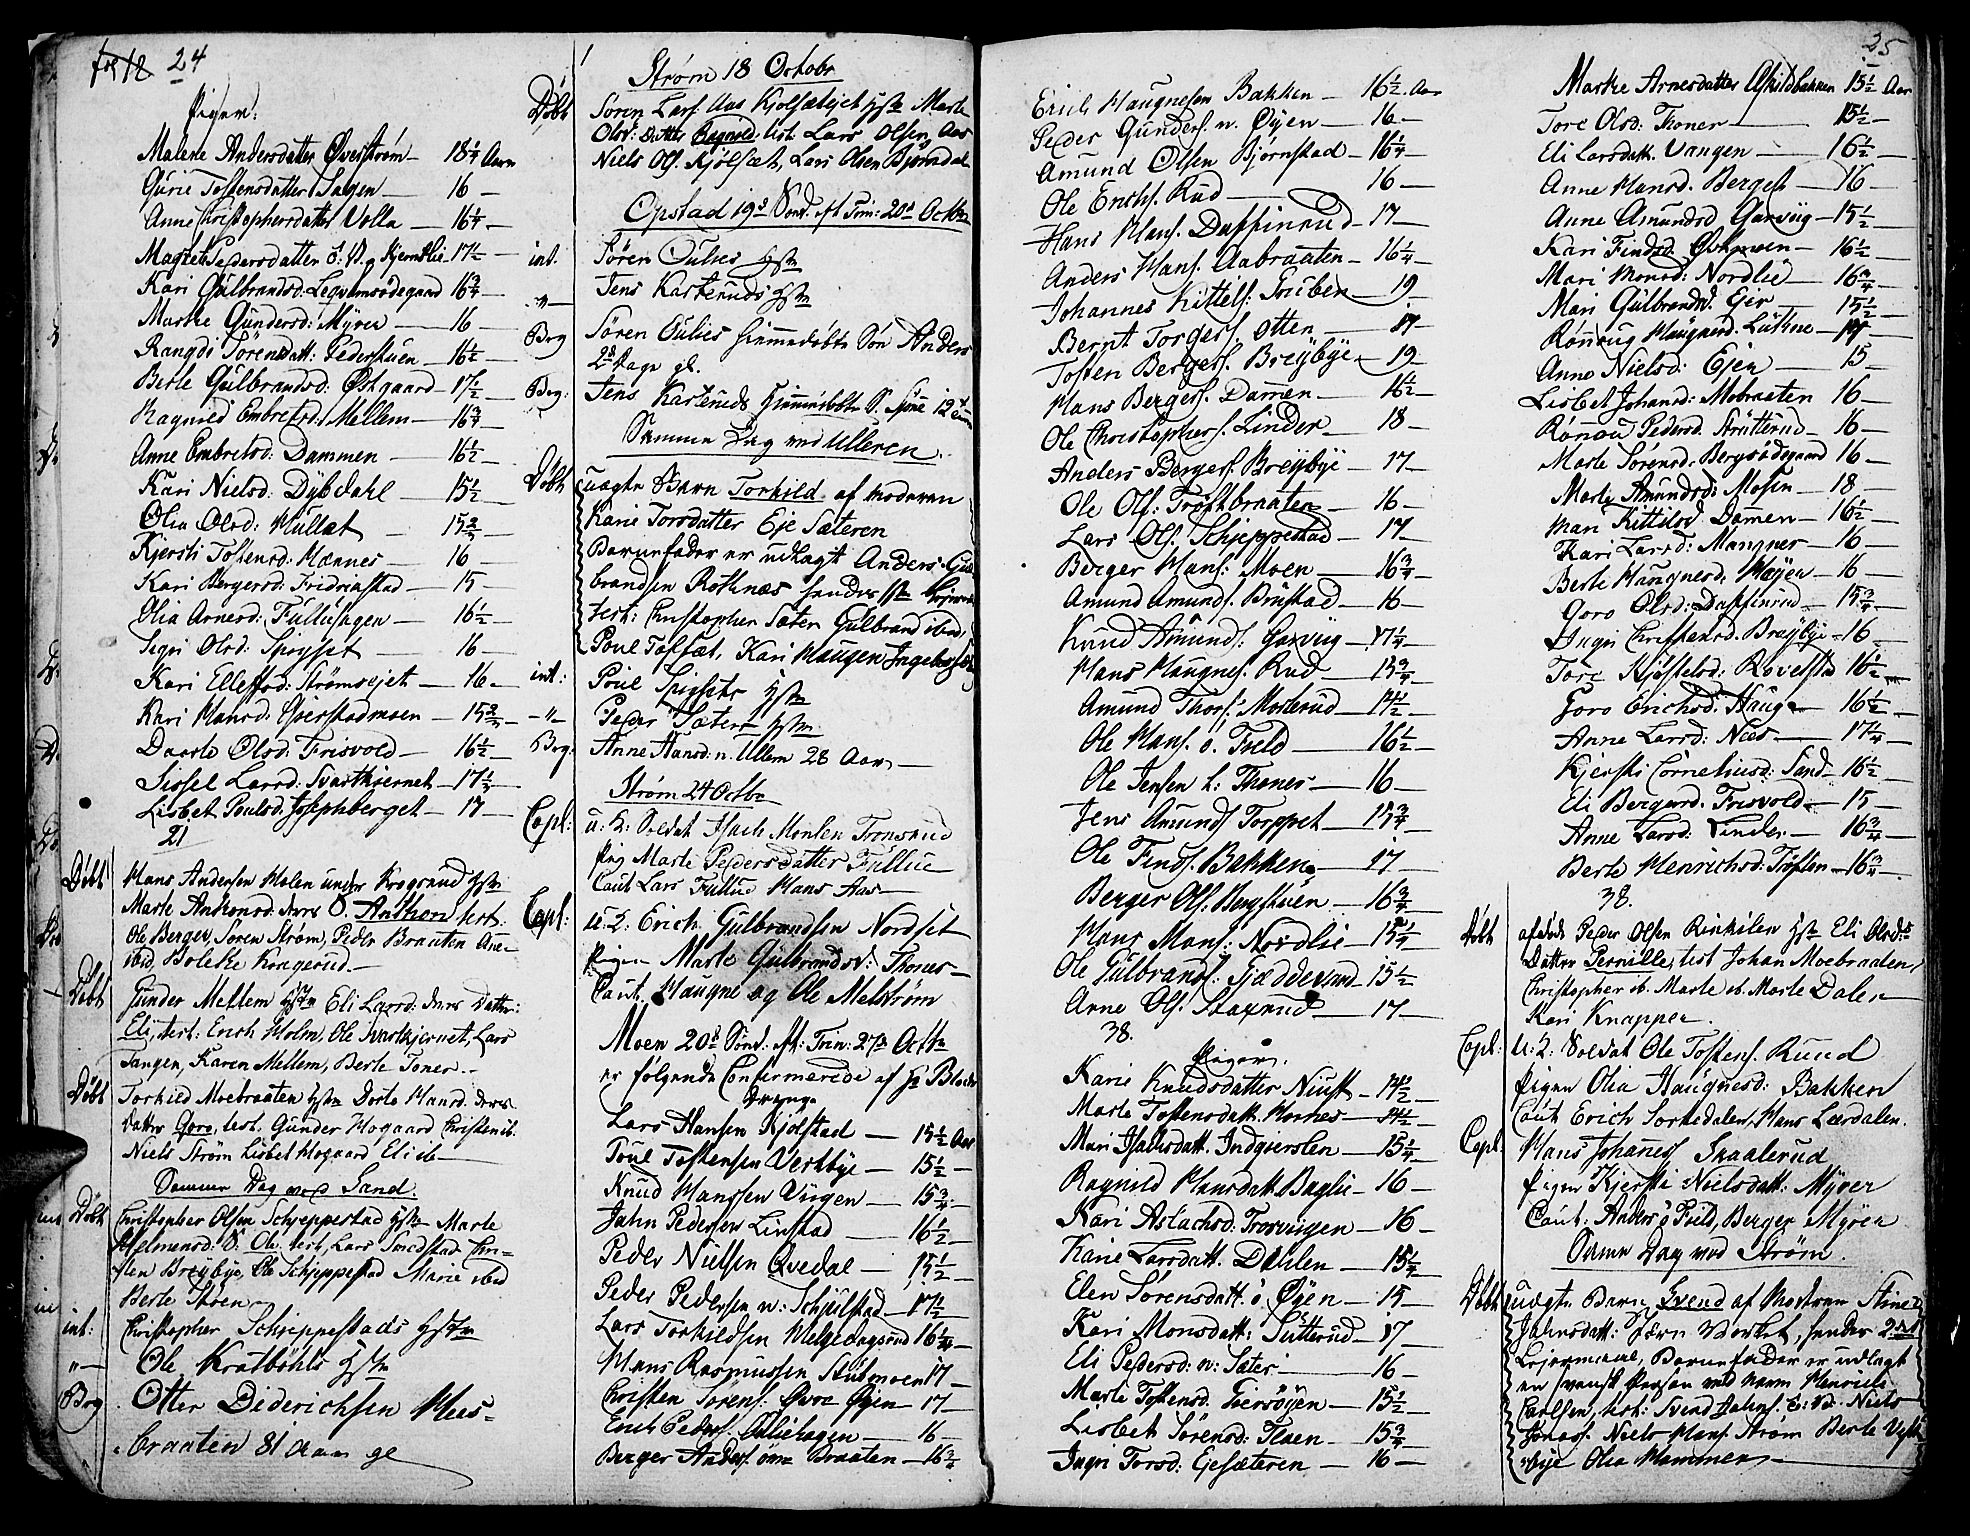 24
Piger:
Malene Andersdatter Øverstrøm — 18 1/4 Aar
Gurie Tostensdatter Hagen — 16 —
Anne Christophersdatter Volla — 16 1/4 —
Magrete Pedersdatter 17 1/2 —
Kari Gulbrandsd: 16 3/4 —
Marthe Gundersd: Myrer — 16 —
Rangdi Sörensdatt: Pederstuen — 16 1/2 —
Berte Gulbrandsd: Østgaard — 17 1/2 —
Ragnild Embretsd: Mellem — 16 3/4 —
Anne Embretsd: Dammen — 16 1/2 —
Kari Nielsd: Dybdahl — 15 1/2 —
Olia Olsd: Hullat — 15 3/4
Kjersti Tostensd: Hænnes — 16 —
Kari Bergersd: Fridrichstad — 15 —
Olia Arnesd: Fulluhagen — 16 1/2 —
Sigri Olsd: Spigset — 16 —
Kari Ellefsd: Strømsejet — 16 —
Kari Hansd: Overstadmoen — 15 3/4 —
Dorte Olsd: Frisvold — 16 1/2 —
Sissel Larsd: Svartkiernet — 17 1/2 —
Lisbet Poulsd: Josephberget — 17 —
21
Döbt Hans Andersen Holen under Krogsrud Hstr
Marte Anthonsd: deres S. Anthon test:
Ole Berger, Søren Strøm, Peder Braaten Ane
ibid, Boleke Kragerud —
Døbt Gunder Mellem Hstr Eli Larsd: deres Datter:
Eli, test: Erich Holm, Ole Svartkjernet, Lars
Tangen, Karen Mellem, Berte Toner. —
Døbt Torkild Moebraaten Hstr Dorte Hansd. deres
Datter Goro, test. Gunder Hogaard Christen ib.
Niels Strøm Lisbet Hogaard Eli ib —
Samme Dag ved Sand.
Døbt Christopher Olsen Schjeppestad Hstr Marte
Helmensd: S. Ole test, Lars Smedstad Chri-
sten Breybye, Ole Schjeppestad Marie ibid
Berte Støen
int: Christopher Schjeppestads Hstr
" — Ole Kratbøhls Hstr
Brg Otter Diderichsen Mees-
braaten 81 Aar gl
Strøm 18 Octobr
Døbt Søren Lars. Aas Kjolsætejet Hstr Marte
Olsd: Datter Ragnild, test. Lars Olsen Aas
Niels Ols. Kjølsæt, Lars Olsen Bjørndal
Opstad 19d Sond. Aft Trin: 20d Octbr
int. Sören Oulies Hstr
" — Jens Kasteruds Hstr
Brg Sören Oulies hiemmedøbte Søn Anders
2 Dage gl.
Brg: Jens Kasteruds hiemmedøbte S.
Samme Dag ved Ulleren.
Døbt uægte Barn Torkild af moderen
Karie Torsdatter Eje Sæteren
Barnefader er udlagt Anders Gul
brandsen Rotnæs hendes
test: Christopher Sæter Gulbrand ibid,
Poul Tofsæt, Kari Haugen Ingeborg
int: Poul Spigsets Hstr
" — Peder Sæters Hstr
Brg: Anne Hansd. n. Ullern 28 Aar —
Strøm 24 Octbr
Copl: u: K: Soldat Isach Monsen Tronsrud
Pig Marte Pedersdatter Fullue
Caut Lars Fullue Hans Aas —
Copl: u: K: Erich Gulbrandsen Nordset
Pigen Marte Gulbrandsd: Thoner —
Caut. Haugne og Ole Melstrøm
Moen 20d Sönd. Aft: Trin: 27d Octbr
er følgende Confirmerede af Hr Block
Drenge
Lars Hansen Kjolstad — 15 1/2 Aar
Poul Tostensen Verkbye — 15 1/2 —
Knud Hanssen Viigen — 15 3/4 —
Jahn Pedersen Linstad — 16 1/2 —
Peder Nielsen Qvedal — 15 1/2 —
Peder Pedersen n: Schjulstad — 17 1/2
Lars Torkildsen Helgedagsrud 16 1/4 —
Hans Rasmussen Stubmoen 17 —
Christen Sörens: Øvre Øyen — 17 —
Erich Peders: Ulliehagen — 16 —
Berger Anders. øvre Braaten — 16 3/4
25
Erich Haugnesen Bakken — 16 1/2 Aar
Peder Gunders. n. Øyen — 16 —
Amund Olsen Bjørnstad — 16 1/4 —
Ole Erichs. Rud — 16 —
Hans Hans. Daffinrud — 17 —
Anders Hans. Aabraaten — 16 1/4 —
Johannes Kittels: Gruben — 19
Bernt Torgers. Otten — 17 —
Tosten Bergers. Breybye — 19 —
Hans Bergers. Damen — 16 1/2 —
Ole Christophers. Linder — 18 —
Anders Bergers. Breybye — 17 —
Ole Ols: Trostbraaten — 16 —
Lars Ols. Schjeppestad — 17 —
Berger Hans: Moen — 16 3/4 —
Amund Amunds. Brustad — 16 —
Knud Amunds: Garviig — 17 1/4 —
Hans Haugnes. Rud — 15 3/4 —
Amund Thors: Mosterud — 14 1/2 —
Ole Hans. o. Tveld — 16 1/2 —
Ole Jensen h: Thoner — 16 —
Jens Amunds Torppet — 15 3/4 —
Ole Finds. Bakken — 17 —
Berger Ols. Bergstuen — 16 3/4 —
Hans Hans: Nordlie — 15 1/4 —
Ole Gulbrands: Fjædderud — 15 1/2 —
Arne Ols. Staxrud — 17 —
38.
Piger.
Karie Knudsdatter Niust — 14 1/2 —
Marte Tostensdatt. — 14 1/2 —
Mari Isaksdatt. Indqverslen — 15 1/4 —
Ragnild Hansdatt. Baglie — 16 —
Kari Aslachsd: Trosvingen — 16 —
Karie Larsdatt. Dahlen — 15 1/4 —
Elen Sörensdatt. ö Øyen — 15 —
Kari Monsdatt: Sutterud — 17 —
Eli Pedersd: n: Sæter — 16 —
Marte Tostensd: — 15 1/2 —
Lisbet Sörensd: Floen — 15 3/4 —
Ingri Torsd: Ejesæteren — 16 —
Marthe Arnesdatter Askildsbakken 15 1/2 Aar
Tore Olsd: Thoner — 15 1/2 —
Eli Larsdatt. Vangen — 16 1/2 —
Anne Hansd. Berget — 16 —
Anne Amundsd Garviig — 15 1/2 —
Kari Findsd: — 16 1/2 —
Mari Monsd: Nordlie — 16 3/4 —
Mari Gulbrandsd. Ejer — 15 1/2 —
Rönnoug Haugnesd. — 17 —
Anne Nielsd: Ejen — 15 —
Lisbet Johansd: Mobraaten 16 —
Rönnou Pedersd. Strutterud — 16 —
Marte Sorensd: Bergsødegaard 16 —
Marte Amundsd: Mosen — 18 —
Mari Kittilsd Damen — 16 1/2 —
Kari Larsd: — 16 —
Berte Haugnesd. Høyen — 16 —
Goro Olsd: Daffinrud — 15 3/4 —
Ingri Christensd: Breybye — 16 —
Tore Kjøstelsd: 16 1/2 —
Goro Erichsd: Haug — 16 1/2 —
Anne Larsd: Næs — 17 1/4 —
Kjersti Cornelinsd: Sand — 16 1/2 —
Eli Bergersd. Frisvold — 15 —
Anne Larsd: Linder — 16 3/4 —
Berte Henrichsd: — 16 3/4 —
38.
Døbt afsøds Peder Olsen Rinkilen Hstr Eli Olsd:
Datter Pernille, test Johan Moebraaten,
Christopher ib. Marte ib. Marte Dalen
Kari Knapper.
Copl: u: K: Soldat Ole Tostens. Ruud
Pigen Olia Haugnesd: Bakken
Caut Erich Sorkedalen, Hans Lærdalen.
Copl. Hans Johanes Skaalerud
Pigen Kjersti Nielsdatt: Myrer
Caut: Anders o Tveld, Berger Myrer
Samme Dag ved Strøm.
Døbt uægte Barn Svend af Moderen Stine
Jahnsdatt: Værket, hendes 2det
Lejermaal, Barnefader er udlagt
en svensk Person ved navn Henrich
Carlsen, test: Svend Jahns. Niels
Jonas. Niels Hans. Strøm Berte
Olia Hammer —